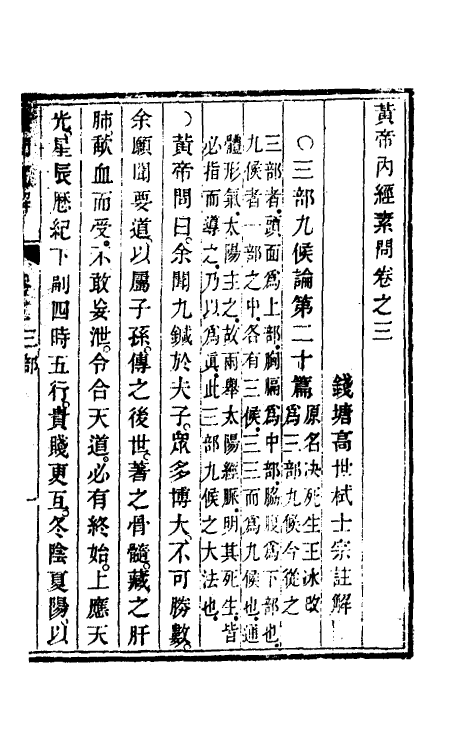 黃帝內經素問卷之三
錢塘高世栻士宗註解
〇三部九候論第二十篇 原名决死生王冰改
為三部九候今從之
三部者頭面為上部胸膈為中部脇腹為下部也
九候者一部之中各有三候三三而為九候也通
體形氣太陽主之故兩舉太陽經脈明其死生皆
必指而導之乃以為眞此三部九候之大法也
〇黃帝問曰余聞九鍼於夫子眾多博大不可勝數
余願聞要道以屬子孫傳之後世著之骨髓藏之肝
肺歃血而受不敢妄泄令合天道必有終始上應天
光星辰歷紀下副四時五行貴賤更互冬陰夏陽以